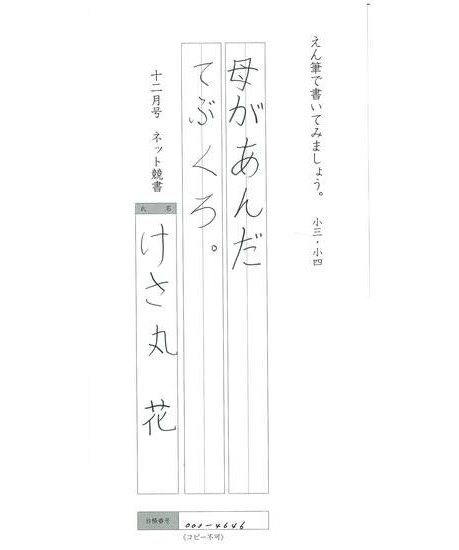 えん筆で書いてみましょう。 小三・小四
母があんだ
てぶくろ。
十二月号 ネット競書
氏名
けさ丸 花
合格番号
001-4646
(コピー不可)